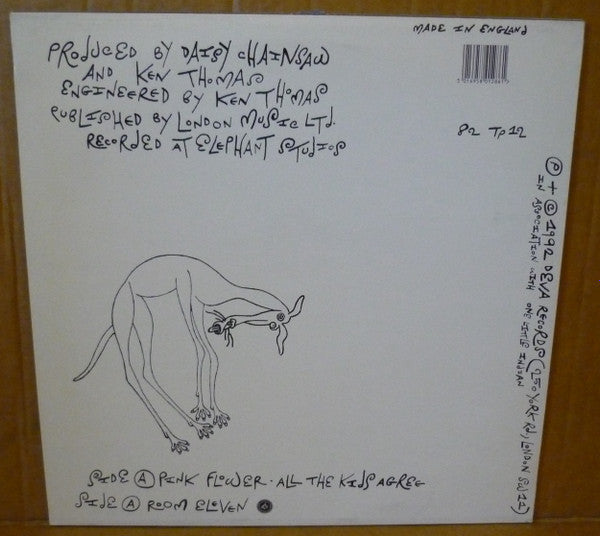 MADE IN ENGLAND
PRODUCED BY DAISY CHAINSAW
AND KEN THOMAS
ENGINEERED BY KEN THOMAS
PUBLISHED BY LONDON MUSIC LTD.
RECORDED AT ELEPHANT STUDIOS
82 TP12
Ⓟ + © 1992 DEVA RECORDS (250 YORK RD, LONDON SW11)
IN ASSOCIATION WITH ONE LITTLE INDIAN
SIDE Ⓐ PINK FLOWER · ALL THE KIDS AGREE
SIDE Ⓐ ROOM ELEVEN